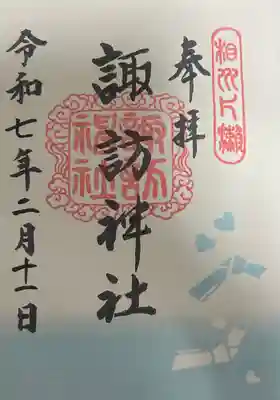 相州片瀬
奉拝
諏訪神社
諏訪神社
令和七年二月十一日